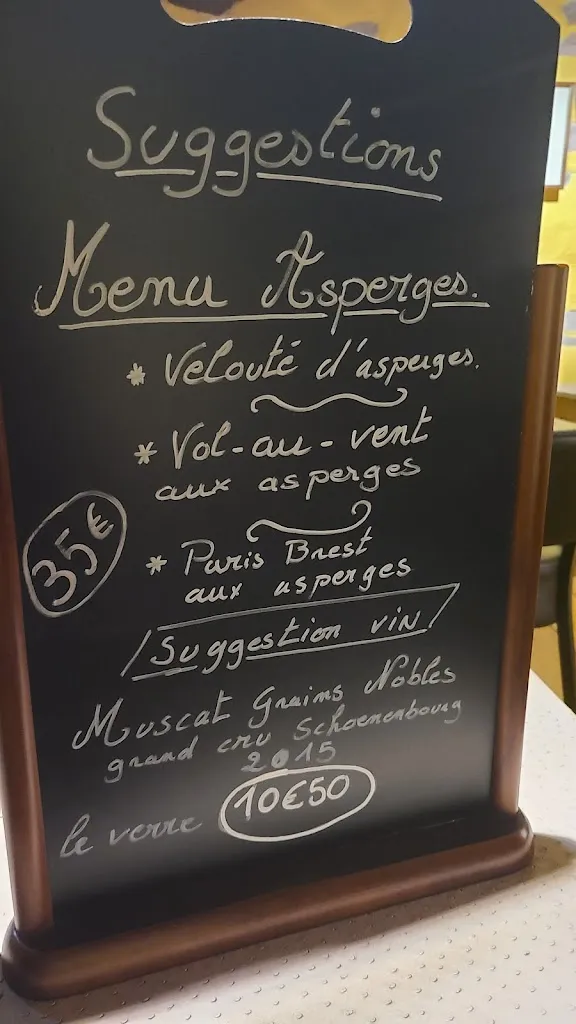 Suggestions
Menu Asperges.
* Velouté d'asperges.
* Vol-au-vent
aux asperges
35€
* Paris Brest
aux asperges
Suggestion vin
Muscat Grains Nobles
grand cru Schoenenbourg
2015
le verre 10€50